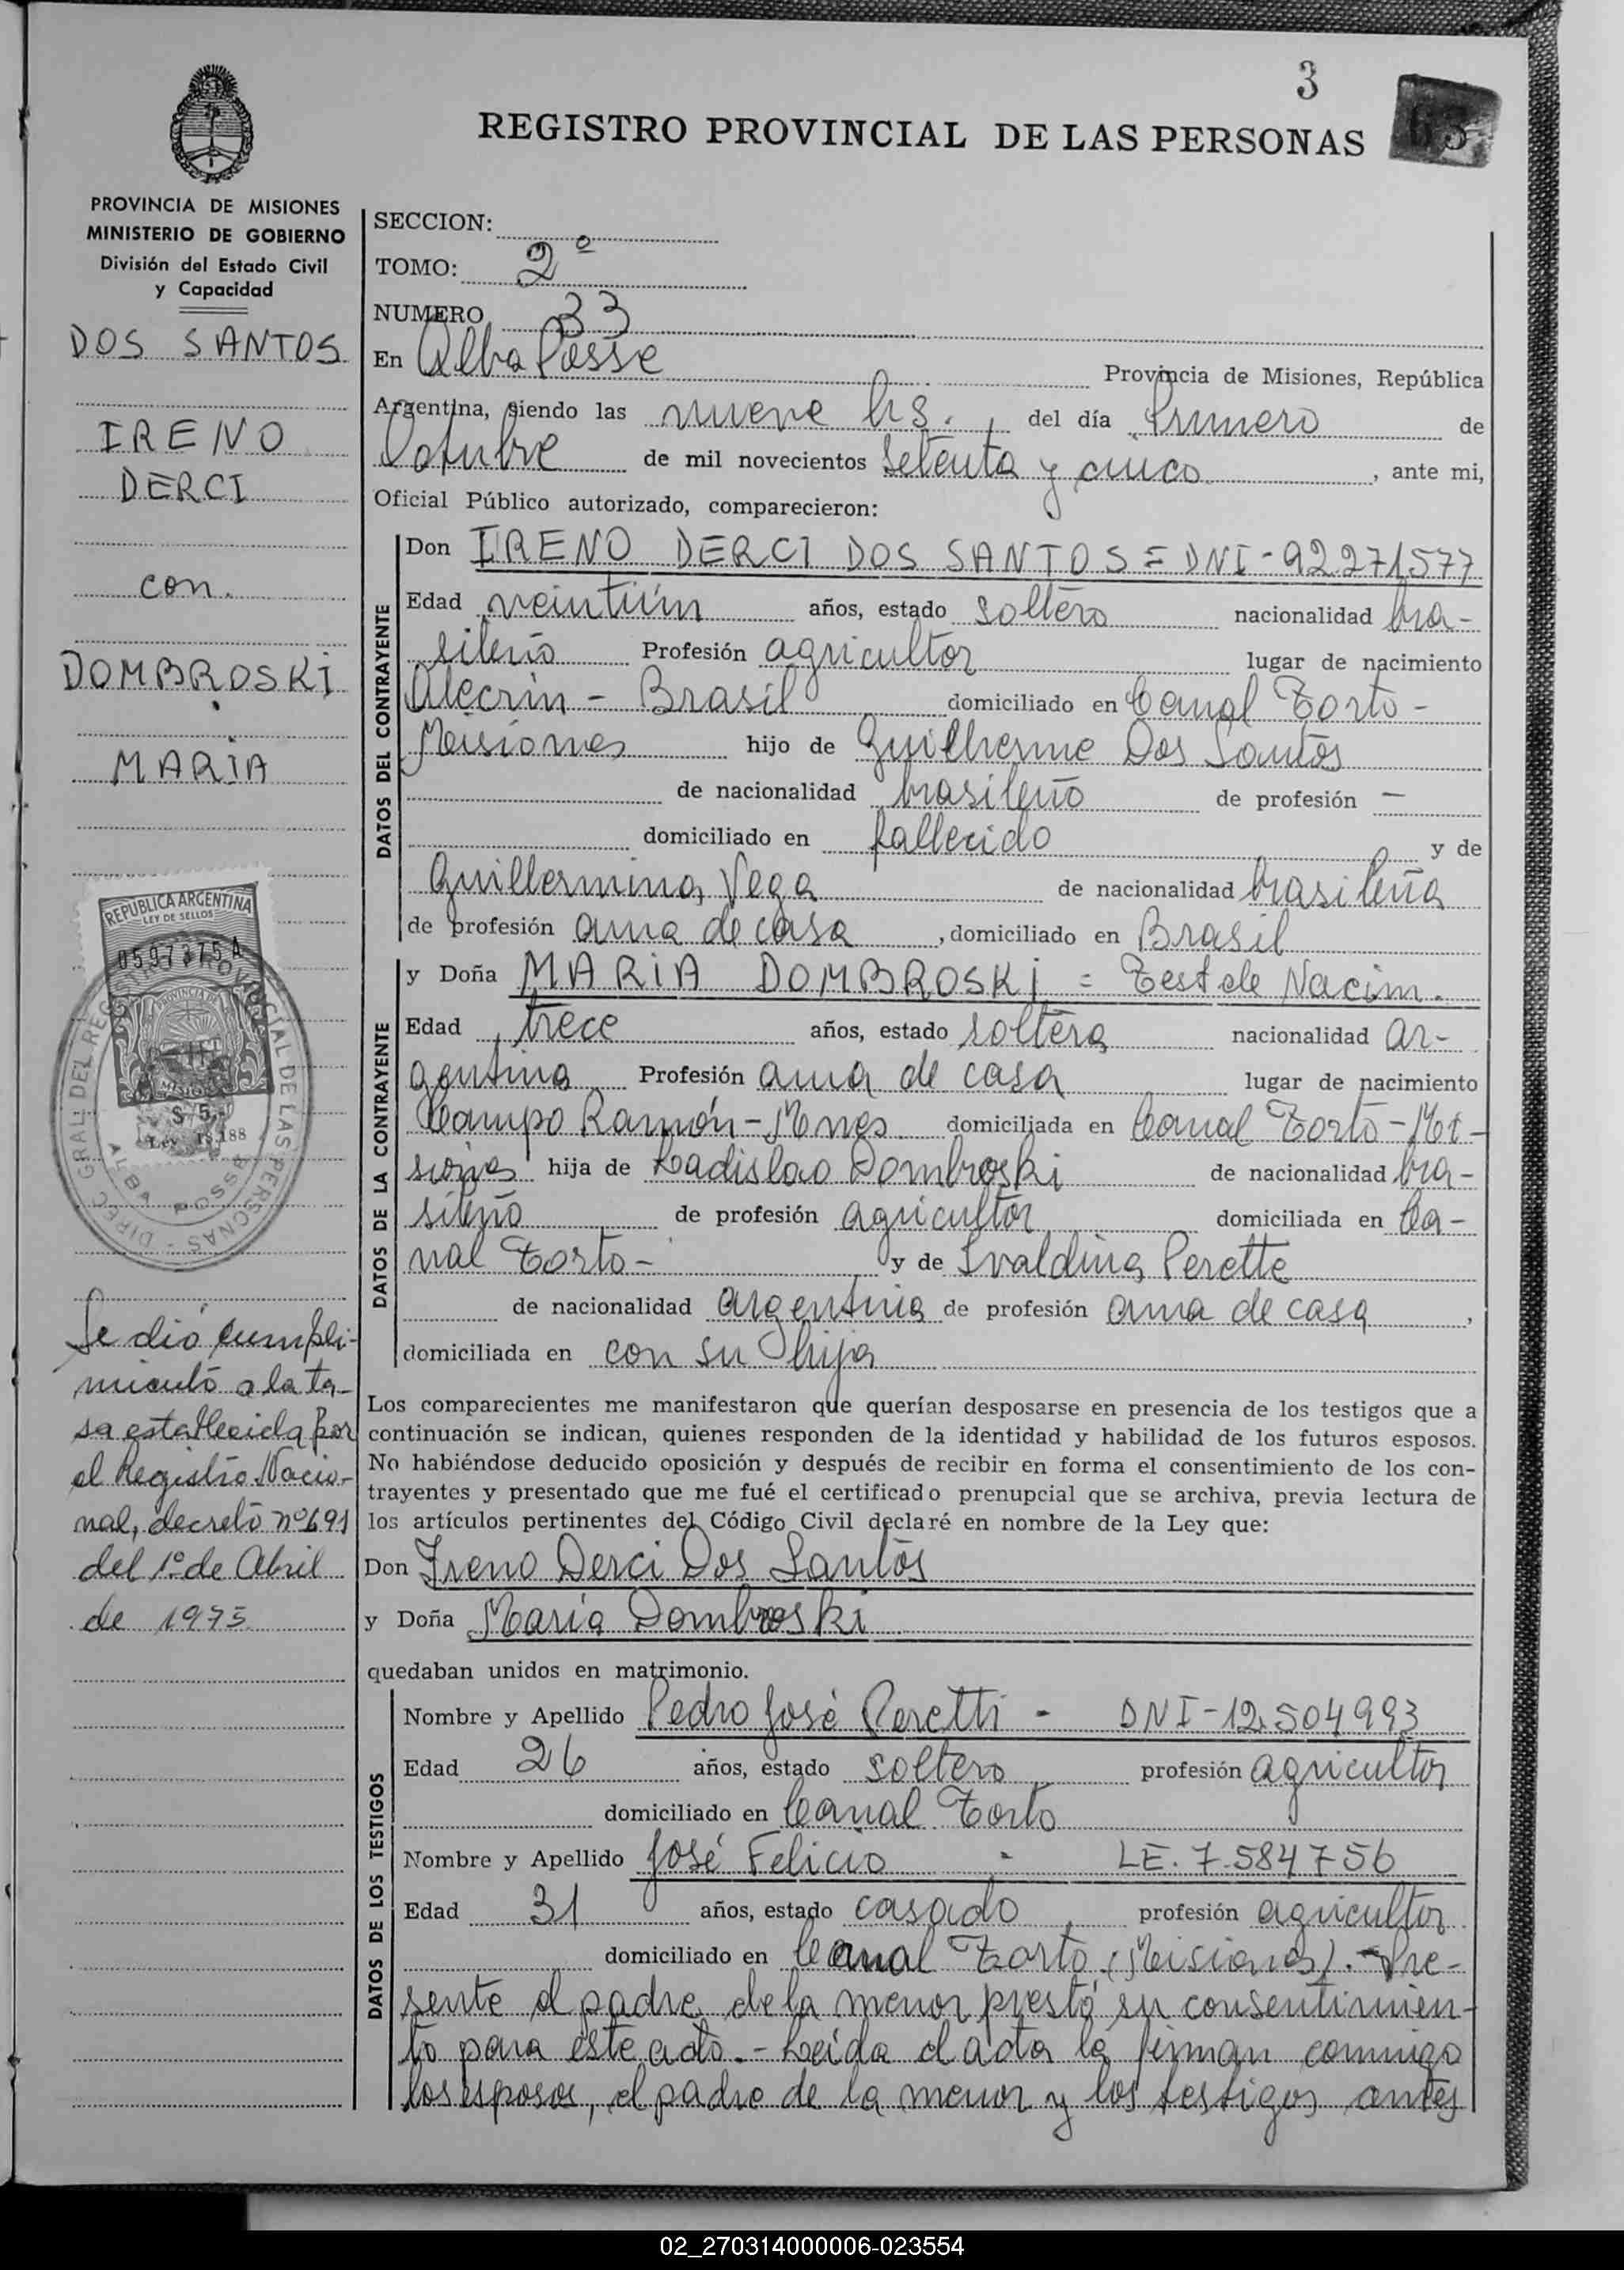 3
REGISTRO PROVINCIAL DE LAS PERSONAS
63
PROVINCIA DE MISIONES
MINISTERIO DE GOBIERNO
División del Estado Civil
y Capacidad
DOS SANTOS
IRENO
DERCI
con.
DOMBROSKI
MARIA
REPUBLICA ARGENTINA
LEY DE SELLOS
0597375 A
PROVINCIA DE
MISIONES
$ 5,-
Ley 18.188
DIREC. GRAL. DEL REG. PROVINCIAL DE LAS PERSONAS -
ALBA POSSE
Se dió cumpli-
miento a la ta-
sa establecida por
el Registro Nacio-
nal, decreto nº 691
del 1º de Abril
de 1975
SECCION:
TOMO: 2º
NUMERO 33
En Alba Posse Provincia de Misiones, República
Argentina, siendo las nueve hs. del día Primero de
Octubre de mil novecientos setenta y cinco, ante mi,
Oficial Público autorizado, comparecieron:
DATOS DEL CONTRAYENTE
Don IRENO DERCI DOS SANTOS = DNI - 92271577
Edad veintiún años, estado soltero nacionalidad bra-
sileño Profesión agricultor lugar de nacimiento
Alecrin - Brasil domiciliado en Canal Torto -
Misiones hijo de Guilherme Dos Santos
de nacionalidad brasileño de profesión —
domiciliado en fallecido y de
Guillermina Vega de nacionalidad brasileña
de profesión ama de casa, domiciliado en Brasil
DATOS DE LA CONTRAYENTE
y Doña MARIA DOMBROSKI = Test de Nacim.
Edad trece años, estado soltera nacionalidad ar-
gentina Profesión ama de casa lugar de nacimiento
Campo Ramón - Mnes domiciliada en Canal Torto - Mi-
siones hija de Ladislao Dombroski de nacionalidad bra-
sileño de profesión agricultor domiciliada en Ca-
nal Torto - y de Ivaldina Perette
de nacionalidad argentina de profesión ama de casa,
domiciliada en con su hija
Los comparecientes me manifestaron que querían desposarse en presencia de los testigos que a
continuación se indican, quienes responden de la identidad y habilidad de los futuros esposos.
No habiéndose deducido oposición y después de recibir en forma el consentimiento de los con-
trayentes y presentado que me fué el certificado prenupcial que se archiva, previa lectura de
los artículos pertinentes del Código Civil declaré en nombre de la Ley que:
Don Ireno Derci Dos Santos
y Doña Maria Dombroski
quedaban unidos en matrimonio.
DATOS DE LOS TESTIGOS
Nombre y Apellido Pedro José Peretti - DNI - 12.504993
Edad 26 años, estado soltero profesión agricultor
domiciliado en Canal Torto
Nombre y Apellido José Felicio - LE. 7.584756
Edad 31 años, estado casado, profesión agricultor
domiciliado en Canal Torto (Misiones). - Pre-
sente el padre de la menor prestó su consentimien-
to para este acto. - Leída el acta la firman conmigo
los esposos, el padre de la menor y los testigos antes
02_270314000006-023554